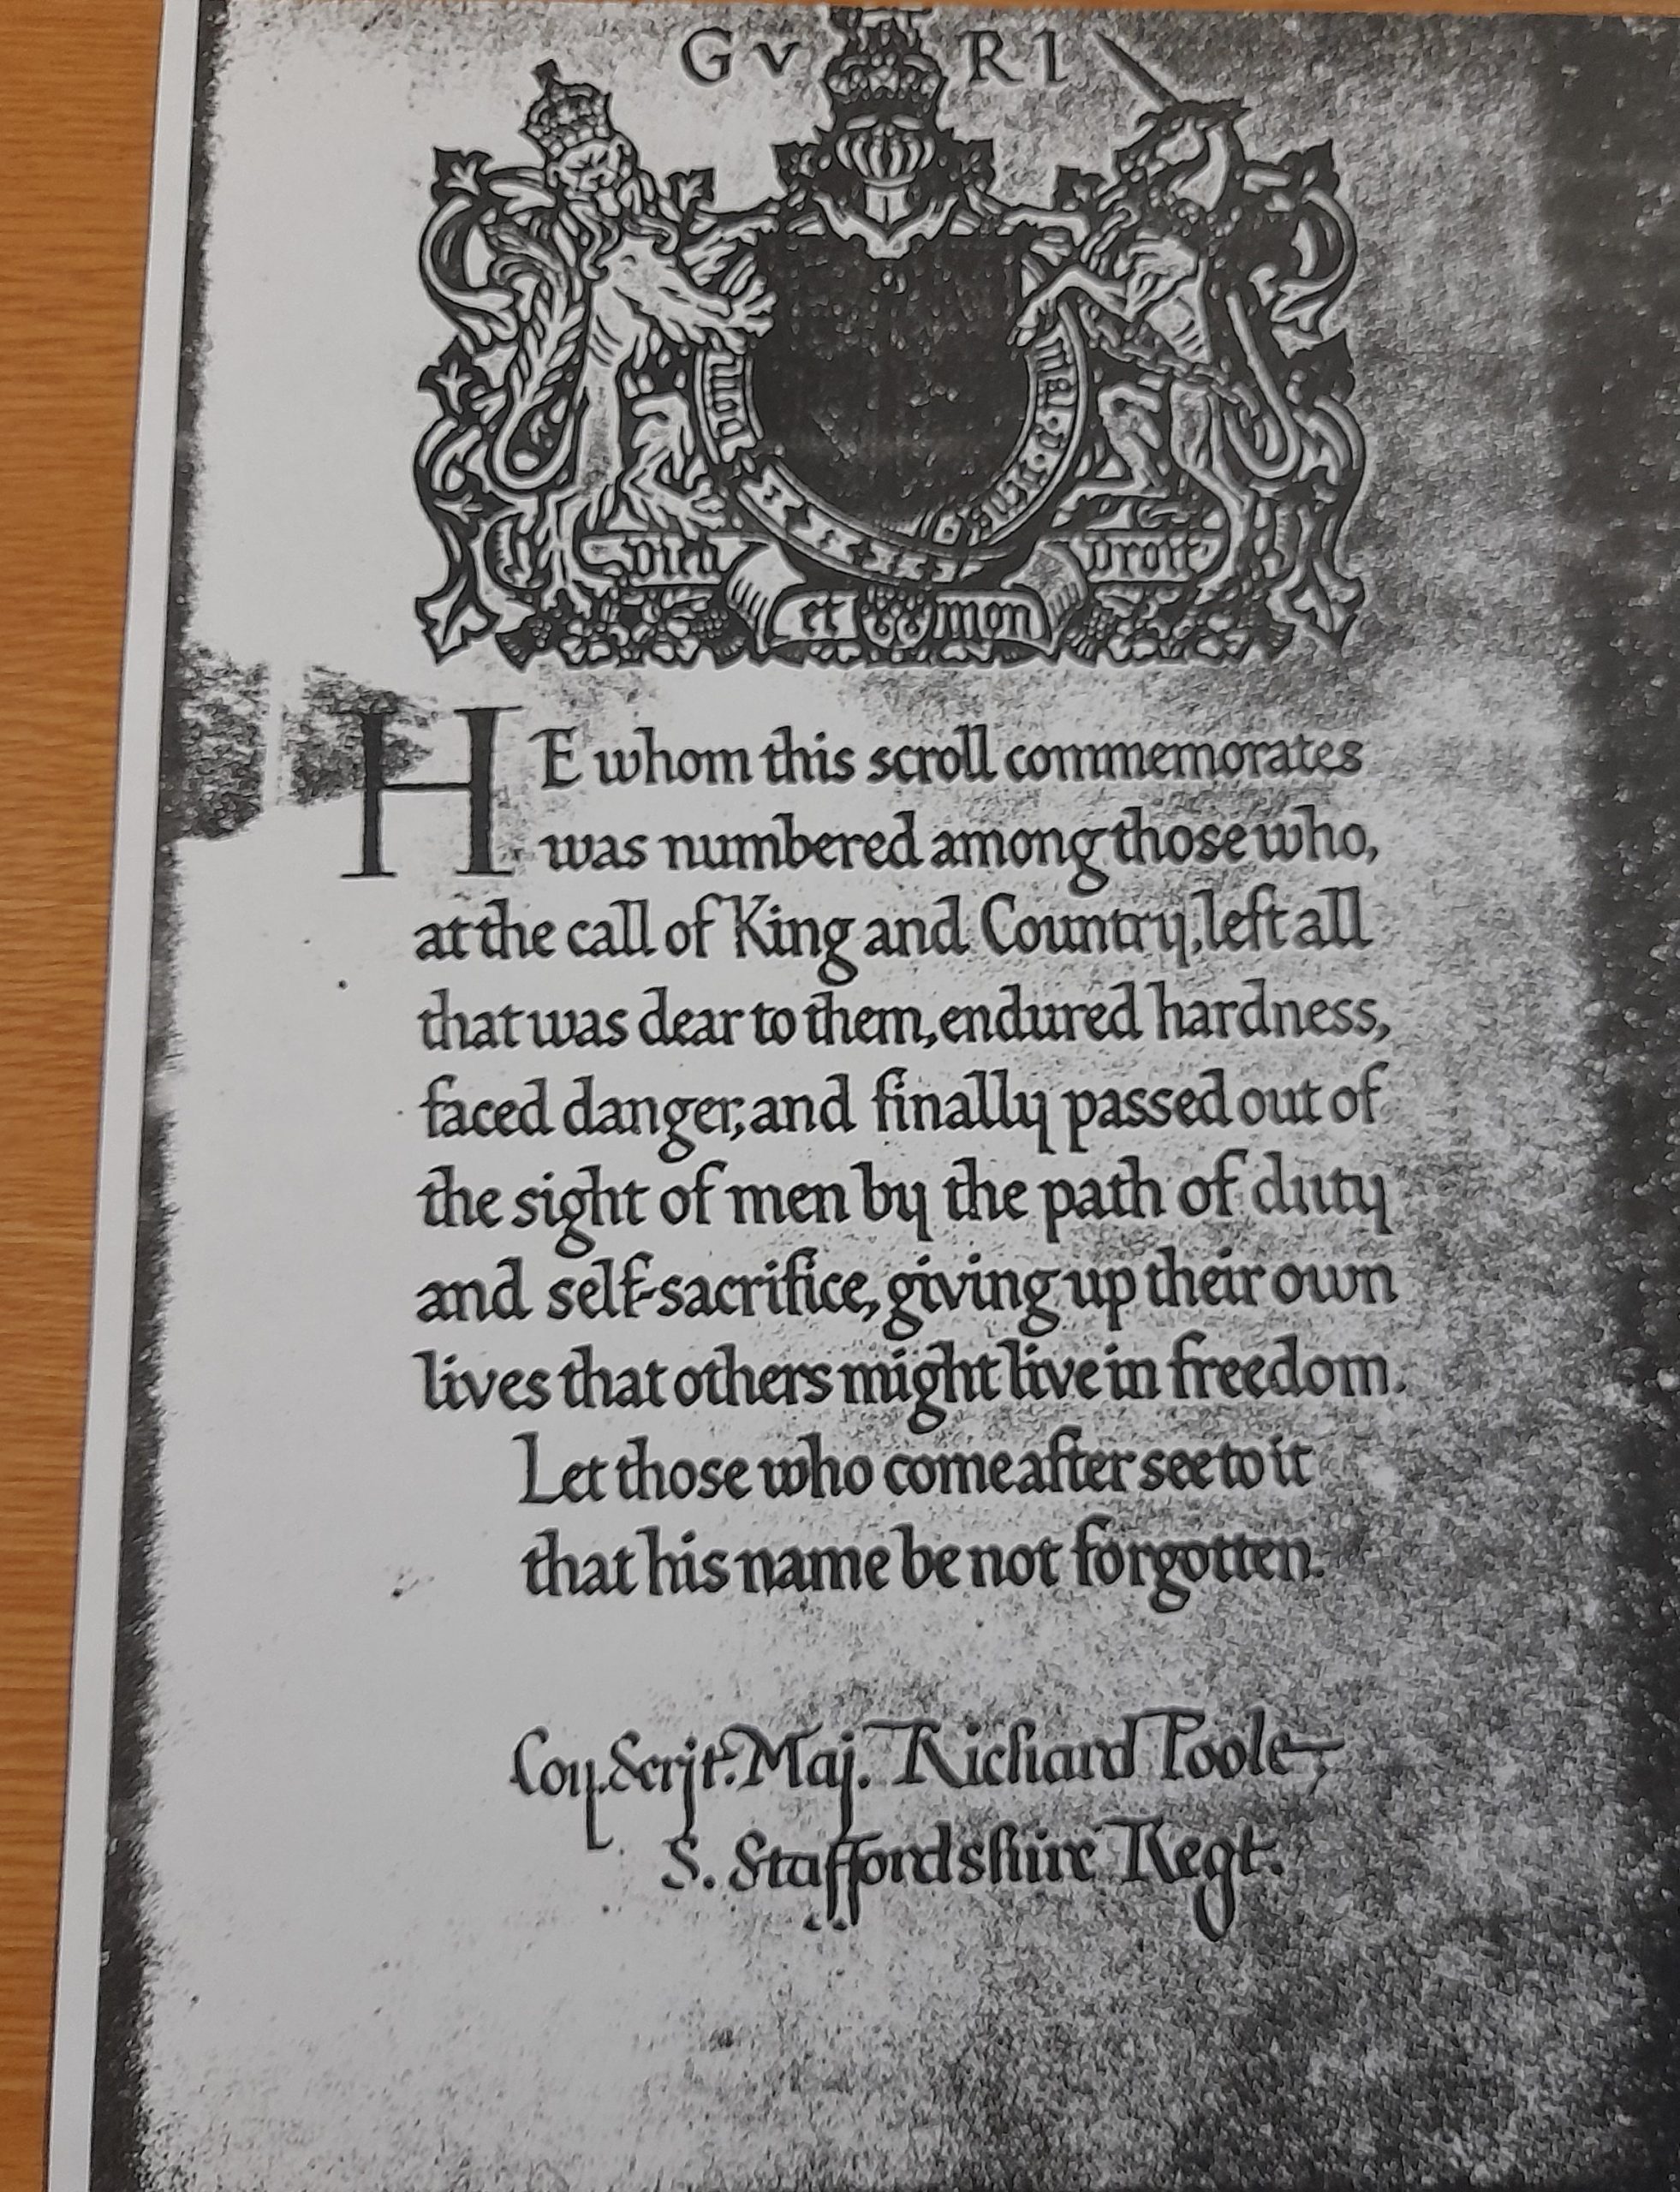 G V R I
Dieu et mon droit
HE whom this scroll commemorates
was numbered among those who,
at the call of King and Country, left all
that was dear to them, endured hardness,
faced danger, and finally passed out of
the sight of men by the path of duty
and self-sacrifice, giving up their own
lives that others might live in freedom.
Let those who come after see to it
that his name be not forgotten.
Coy. Serjt. Maj. Richard Poole,
S. Staffordshire Regt.